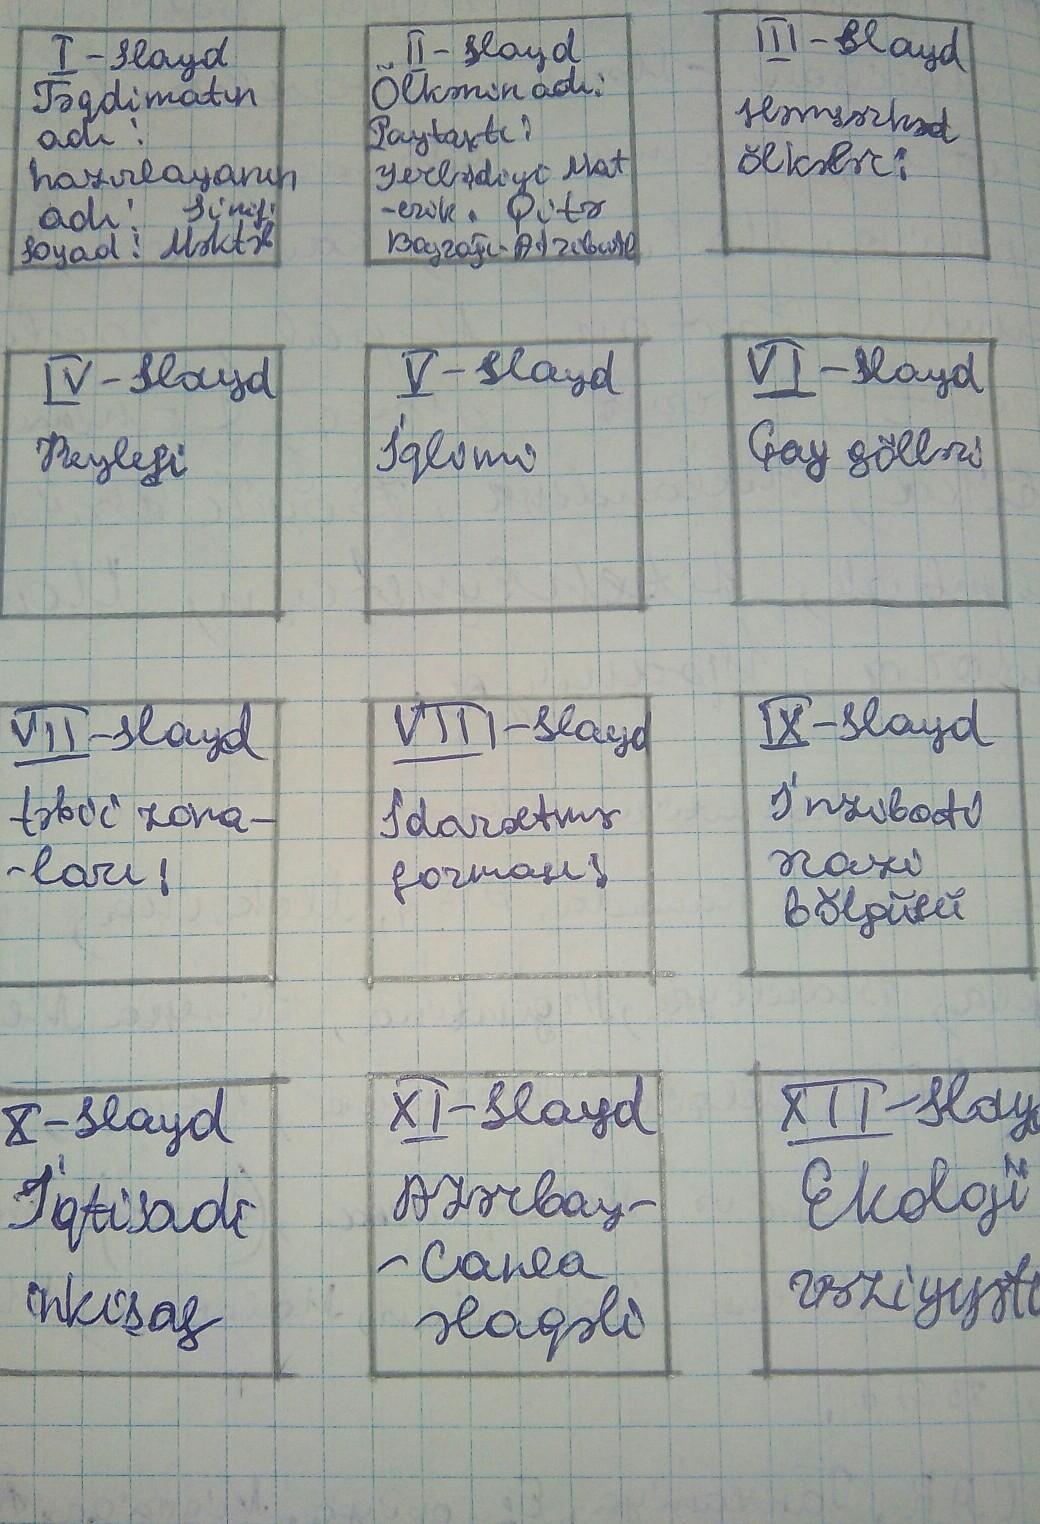 I - Slayd
Təqdimatın
adı:
hazırlayanın
adı: Sinif:
Soyad: Məktəb
II - Slayd
Ölkənin adı:
Paytaxtı:
Yerləşdiyi Mat
-erik. Qitə
Bayrağı - Atributl
III - Slayd
Həmsərhəd
ölkələr:
IV - Slayd
Relyefi
V - Slayd
İqlimi
VI - Slayd
Çay gölləri
VII - Slayd
təbii zona-
-ları:
VIII - Slayd
İdarəetmə
forması:
IX - Slayd
İnzibati
ərazi
bölgüsü
X - Slayd
İqtisadi
inkişaf
XI - Slayd
Azərbay-
-Canla
əlaqəli
XII - Slay
Ekoloji
vəziyyəti